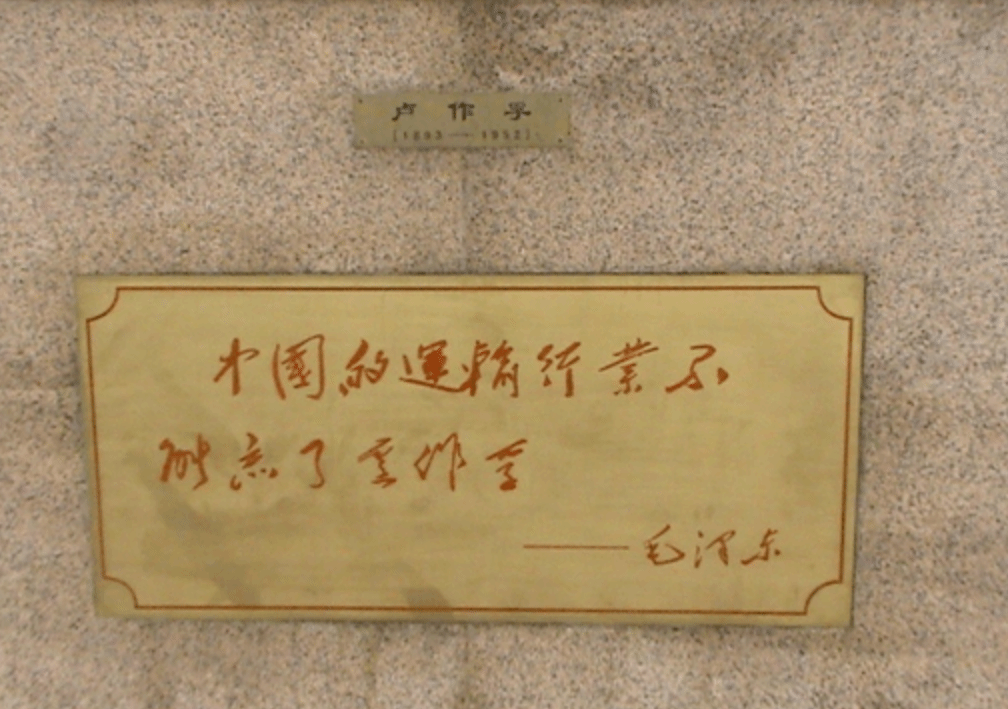 卢作孚
[1893—1952]
中國的運輸行業不
能忘了盧作孚
——毛泽东